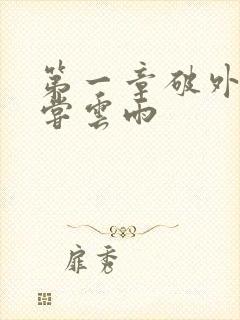 第一章破外
尝云雨
扉秀